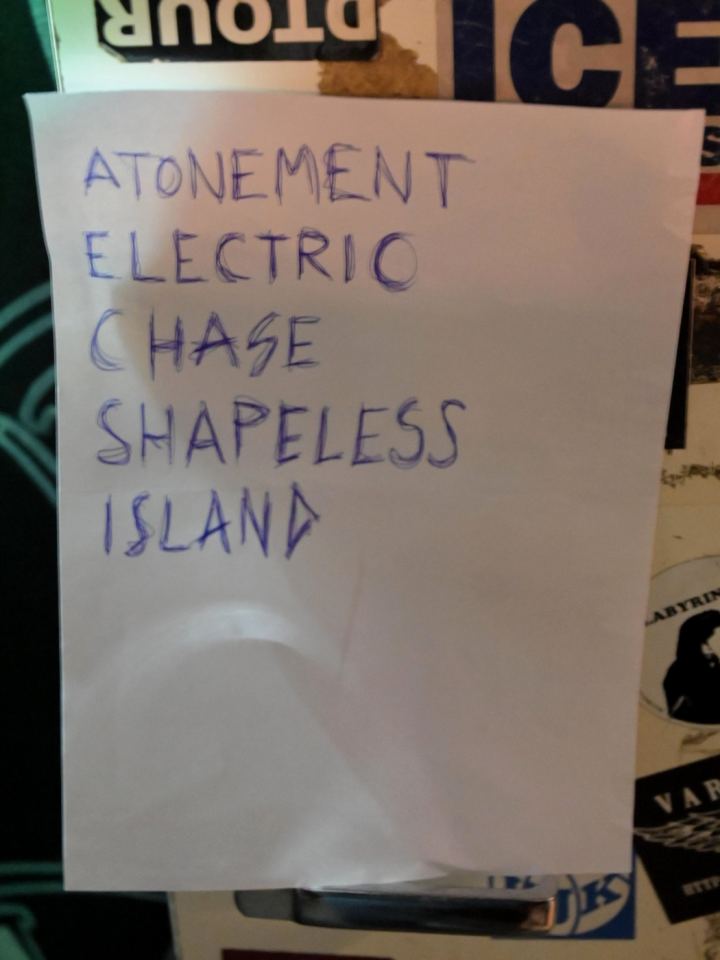 DTOUR
ICE
ATONEMENT
ELECTRIC
CHASE
SHAPELESS
ISLAND